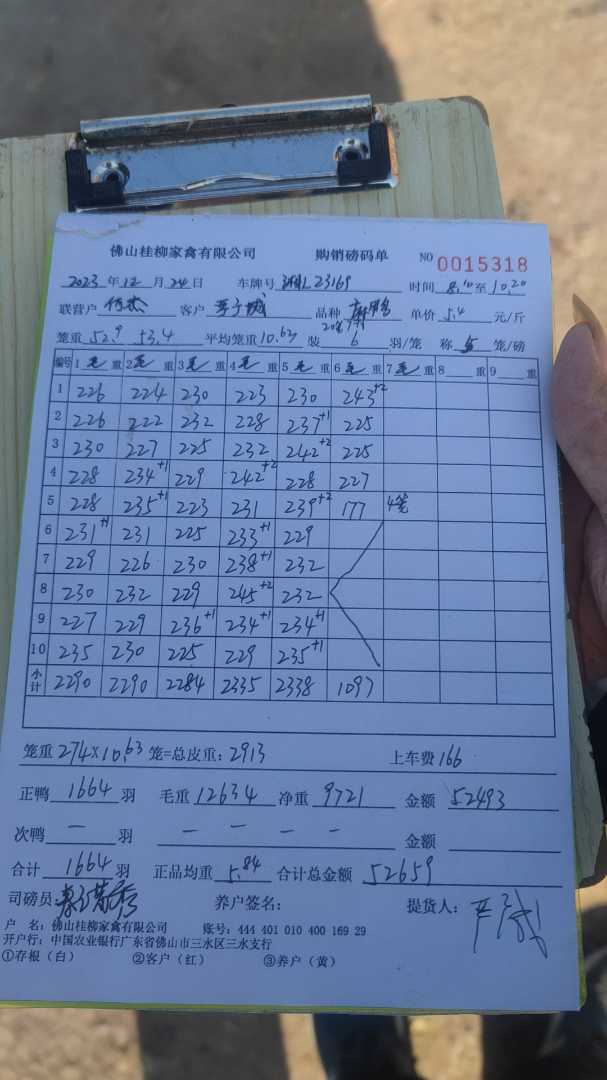 佛山桂柳家禽有限公司 购销磅码单 NO 0015318
2023 年 12 月 24 日 车牌号 湘L23169 时间 8.10 至 10.20
联营户 客户 品种 单价 5.4 元/斤
笼重 52.9 53.4 平均笼重 10.63 装 6 羽/笼 称 5 笼/磅
编号 1 毛 重 2 毛 重 3 毛 重 4 毛 重 5 毛 重 6 毛 重 7 毛 重 8 重 9 重
1 226 224 230 223 230 243+2
2 226 222 232 228 237+1 225
3 230 227 225 232 242+2 225
4 228 234+1 229 242+2 228 227
5 228 235+1 223 231 239+2 177 4笼
6 231+1 231 225 233+1 229
7 229 226 230 238+1 232
8 230 232 229 245+2 232
9 227 229 236+1 234+1 234+1
10 235 230 225 229 235+1
小计 2290 2290 2284 2335 2338 1097
笼重 274×10.63 笼=总皮重: 2913 上车费 166
正鸭 1664 羽 毛重 12634 净重 9721 金额 52493
次鸭 — 羽 — — — — 金额
合计 1664 羽 正品均重 5.84 合计总金额 52659
司磅员 养户签名: 提货人:
户 名: 佛山桂柳家禽有限公司 账号: 444 401 010 400 169 29
开户行: 中国农业银行广东省佛山市三水区三水支行
①存根(白) ②客户(红) ③养户(黄)